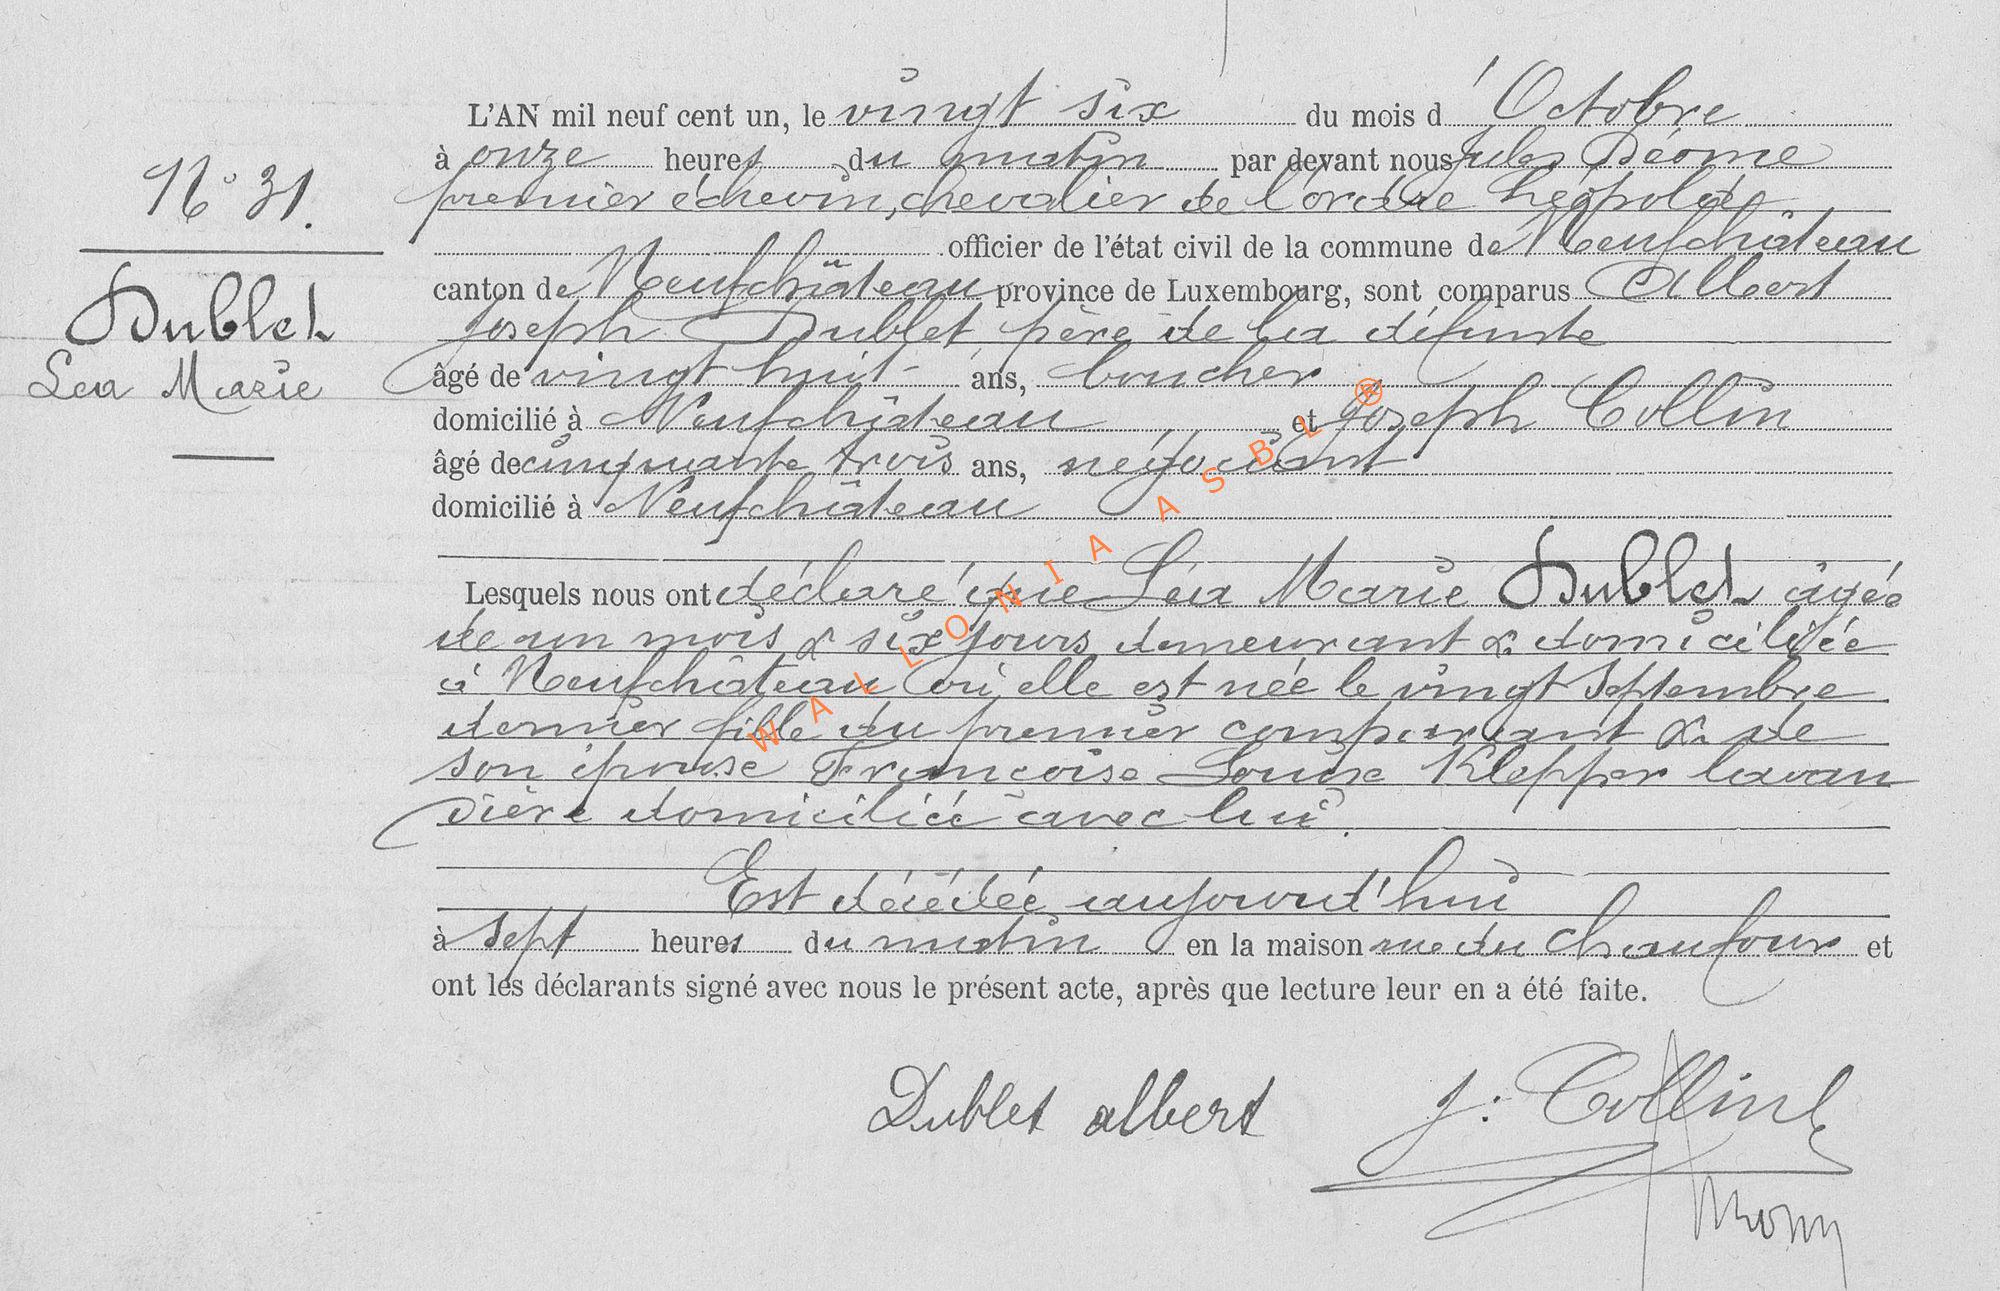 N° 31.
Dublet
Léa Marie
L'AN mil neuf cent un, le vingt six du mois d'Octobre
à onze heures du matin par devant nous Jules Déome
premier échevin, chevalier de l'ordre Léopold
officier de l'état civil de la commune de Neufchâteau
canton de Neufchâteau province de Luxembourg, sont comparus Albert
Joseph Dublet, père de la défunte
âgé de vingt huit ans, boucher
domicilié à Neufchâteau et Joseph Collin
âgé de cinquante trois ans, négociant
domicilié à Neufchâteau
Lesquels nous ont déclaré que Léa Marie Dublet âgée
de un mois & six jours demeurant & domiciliée
à Neufchâteau où elle est née le vingt Septembre
dernier fille du premier comparant & de
son épouse Françoise Louise Klepper lavan
dière domiciliée avec lui.
Est décédée aujourd'hui
à sept heures du matin en la maison rue du Chaufour et
ont les déclarants signé avec nous le présent acte, après que lecture leur en a été faite.
Dublet albert
J: Collin
WALLONIA ASBL ®